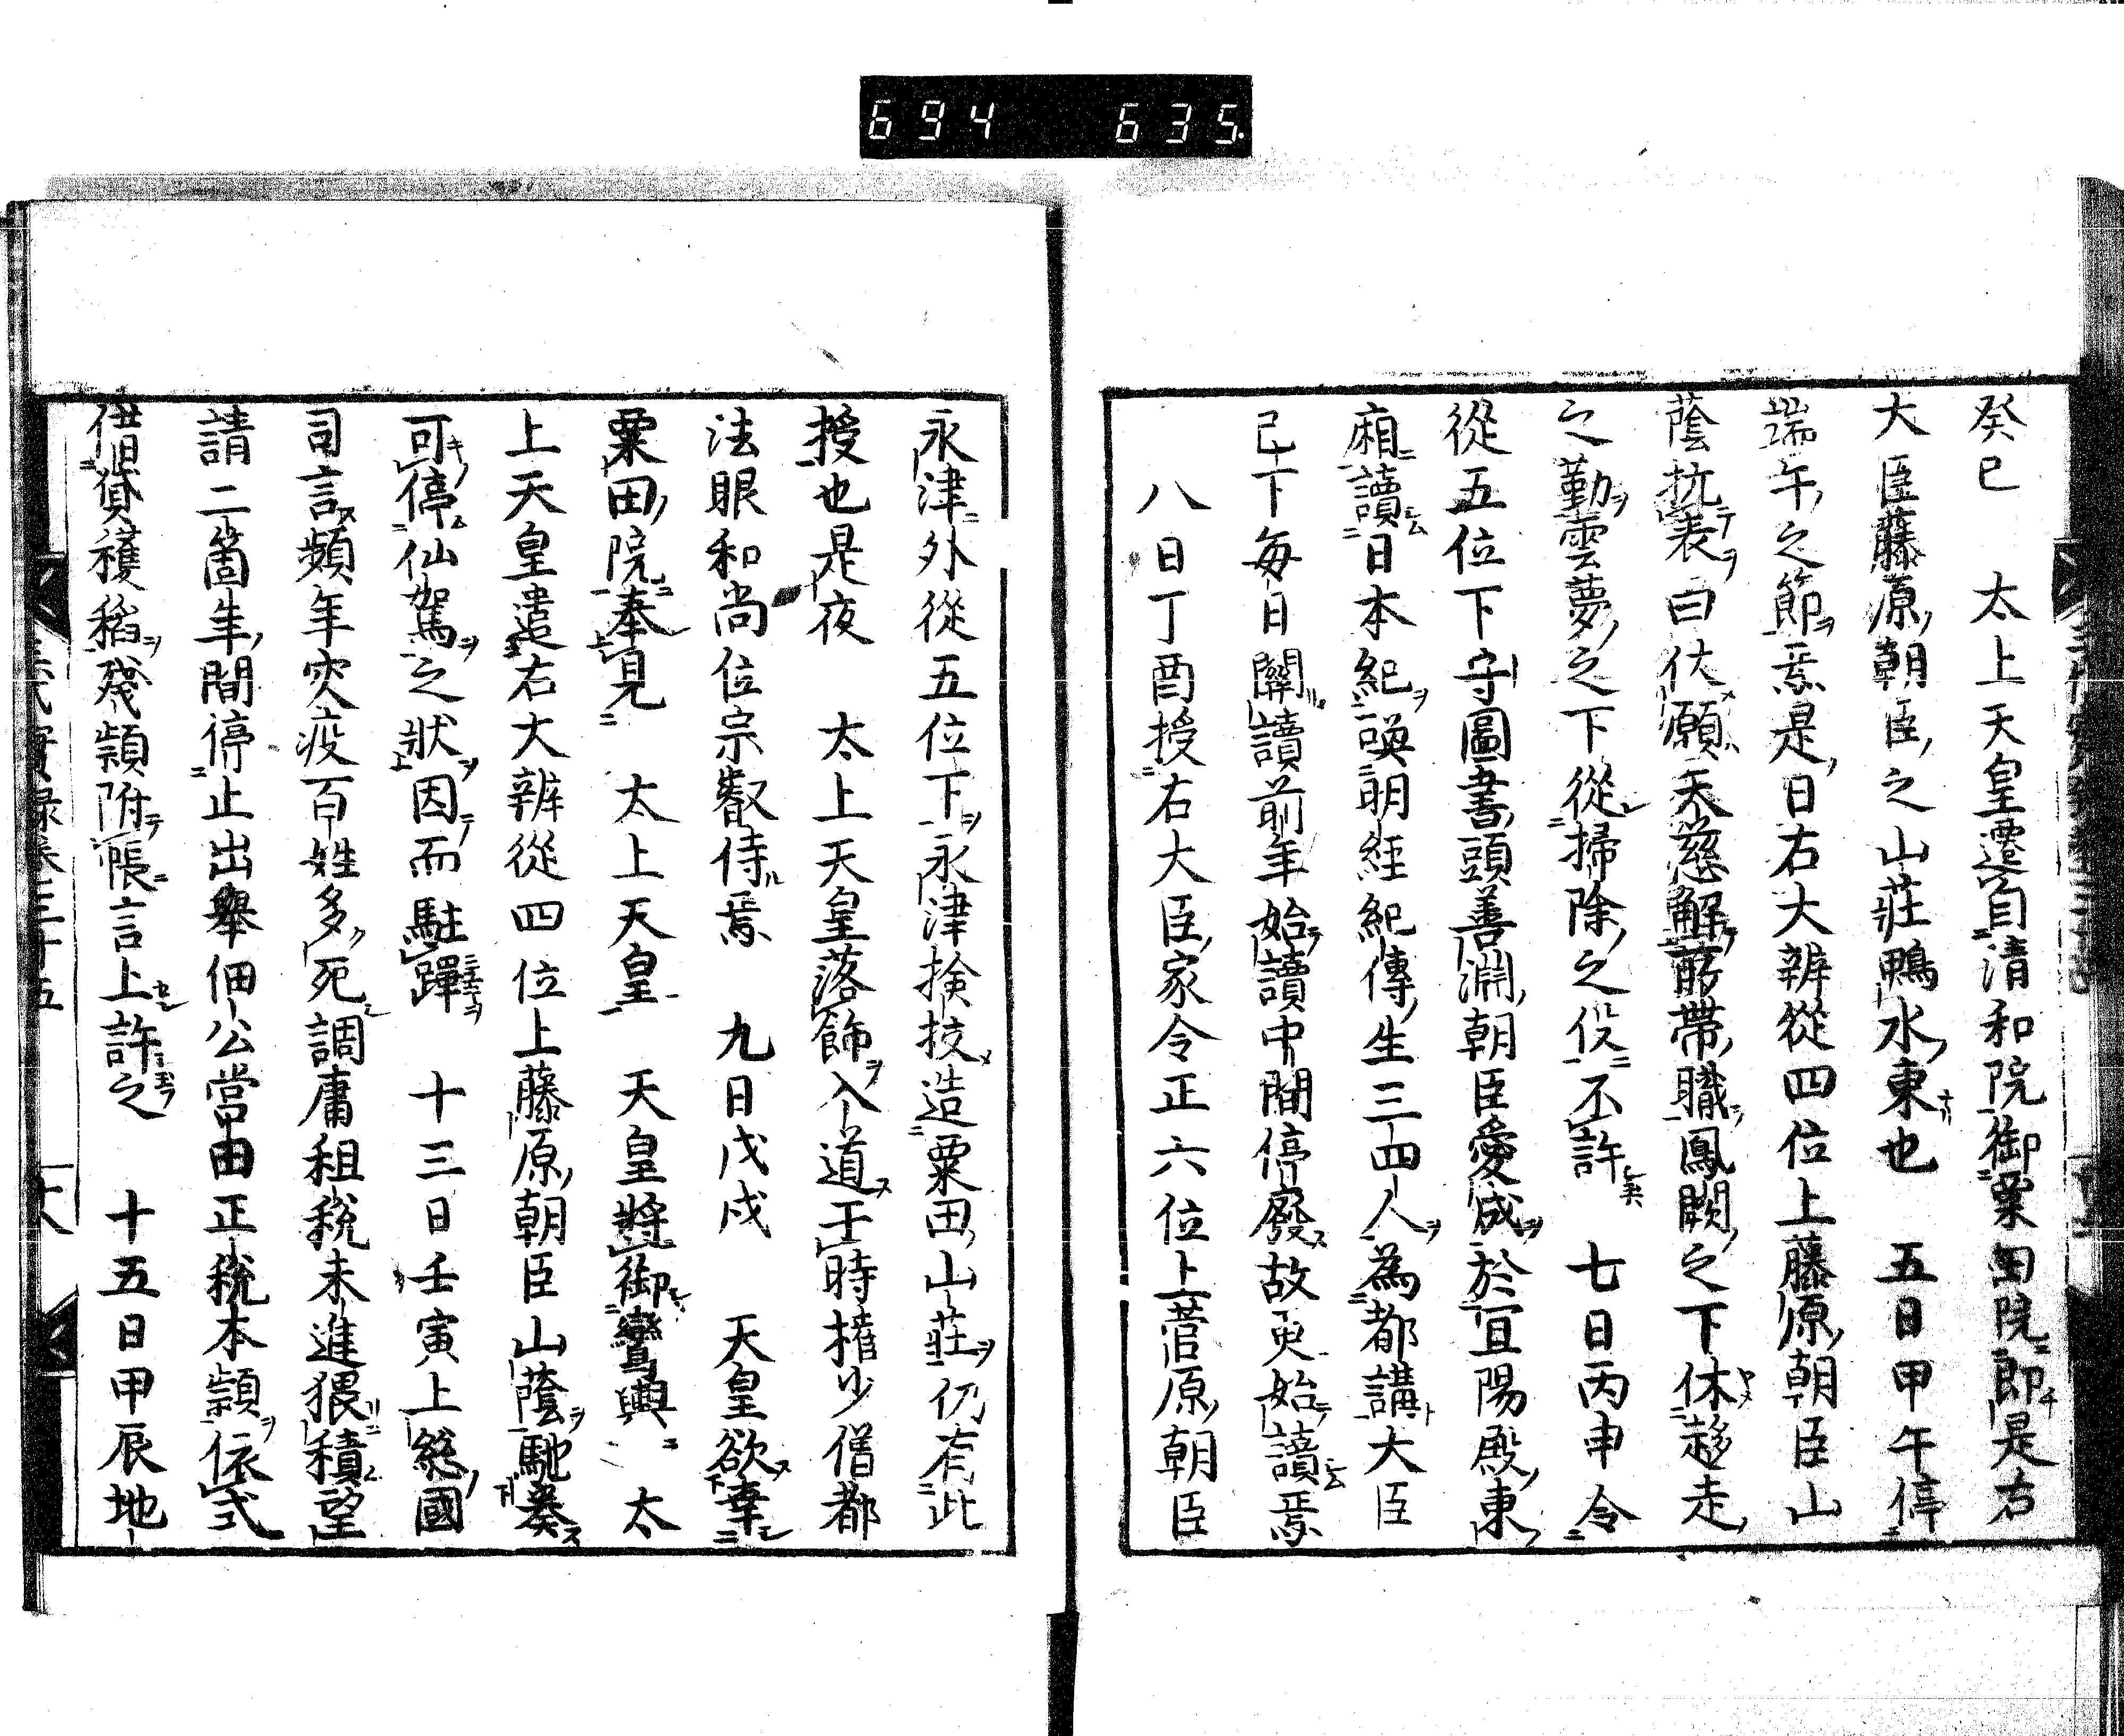 694 635
癸巳 太上天皇遷自清和院御粟田院即是右
大臣藤原朝臣之山莊鴨水東也 五日甲午停
端午之節焉是日右大辨從四位上藤原朝臣山
蔭抗表曰伏願天慈解所帶職鳳闕之下休趍走
之勤雲夢之下從掃除之役不許 七日丙申令
從五位下守圖書頭善淵朝臣愛成於宜陽殿東
廂讀日本紀喚明經紀傳生三四人為都講大臣
已下每日閱讀前年始讀中間停廢故更始讀焉
八日丁酉授右大臣家令正六位上菅原朝臣
永津外從五位下永津挨挍造粟田山莊仍有此
授也是夜 太上天皇落飾入道于時權少僧都
法眼和尚位宗叡侍焉 九日戊戌 天皇欲幸
粟田院奉見 太上天皇 天皇將御鸞輿 太
上天皇遣右大辨從四位上藤原朝臣山蔭馳奏
可停仙駕之狀因而駐蹕 十三日壬寅上総國
司言頻年灾疫百姓多死調庸租税未進猥積望
請二箇年間停止出舉佃公營田正税本穎依式
借貸穫稻殘穎附帳言上許之 十五日甲辰地
三代實録卷三十五